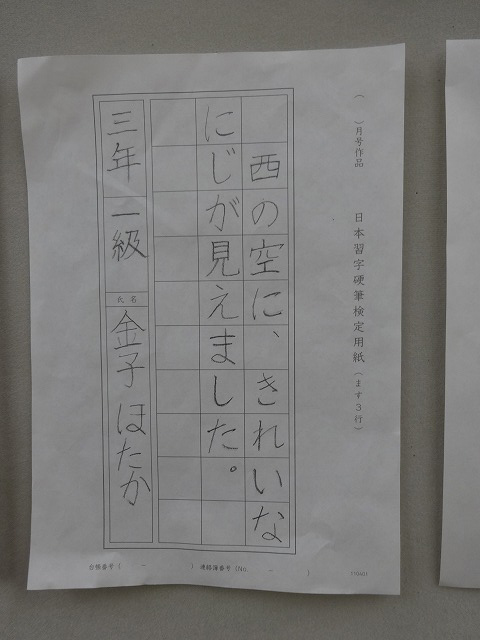 （　　）月号作品　日本習字硬筆検定用紙（ます３行）
西の空に、きれいな
にじが見えました。
三年 一級 氏名 金子 ほたか
台帳番号（　　－　　）連絡簿番号（No.　　－　　）